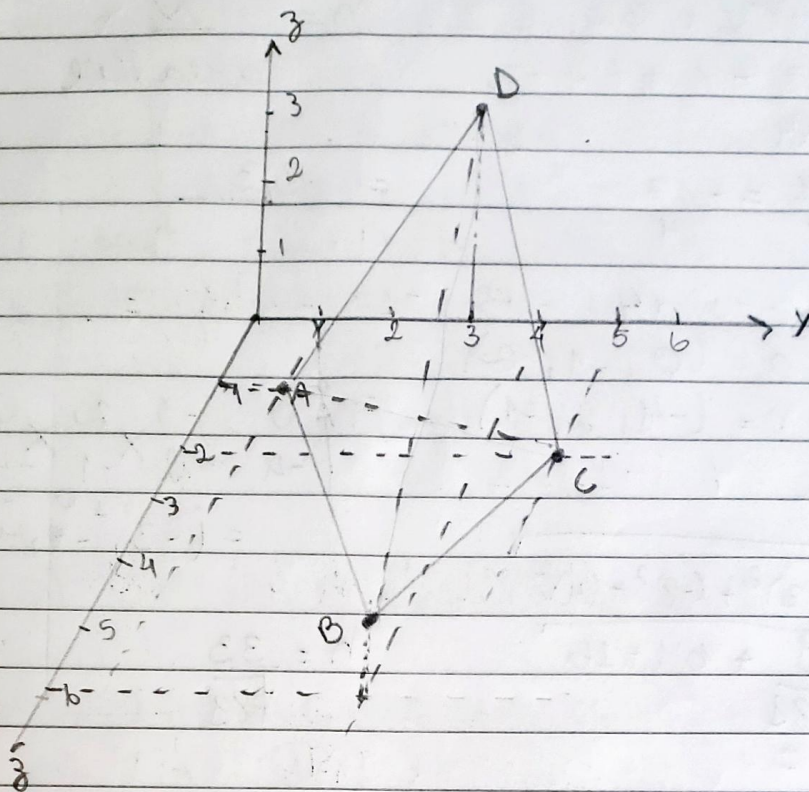 z
D
3
2
1
1 2 3 4 5 6 Y
1 A
2
C
3
4
B
5
6
z